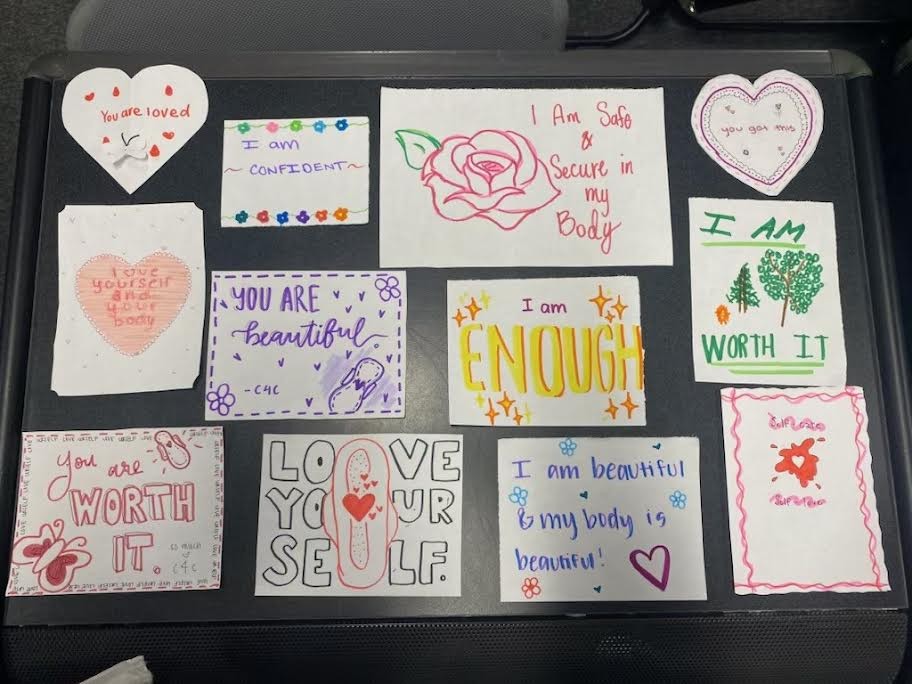 You are loved
I am
~ CONFIDENT ~
I Am Safe
&
Secure in
my
Body
you got this
love
yourself
and
your
body
YOU ARE
beautiful.
-C4C
I am
ENOUGH
I AM
WORTH IT
You are
WORTH
IT
SO MUCH
C4C
LOVE
YOUR
SELF.
I am beautiful
& my body is
beautiful!